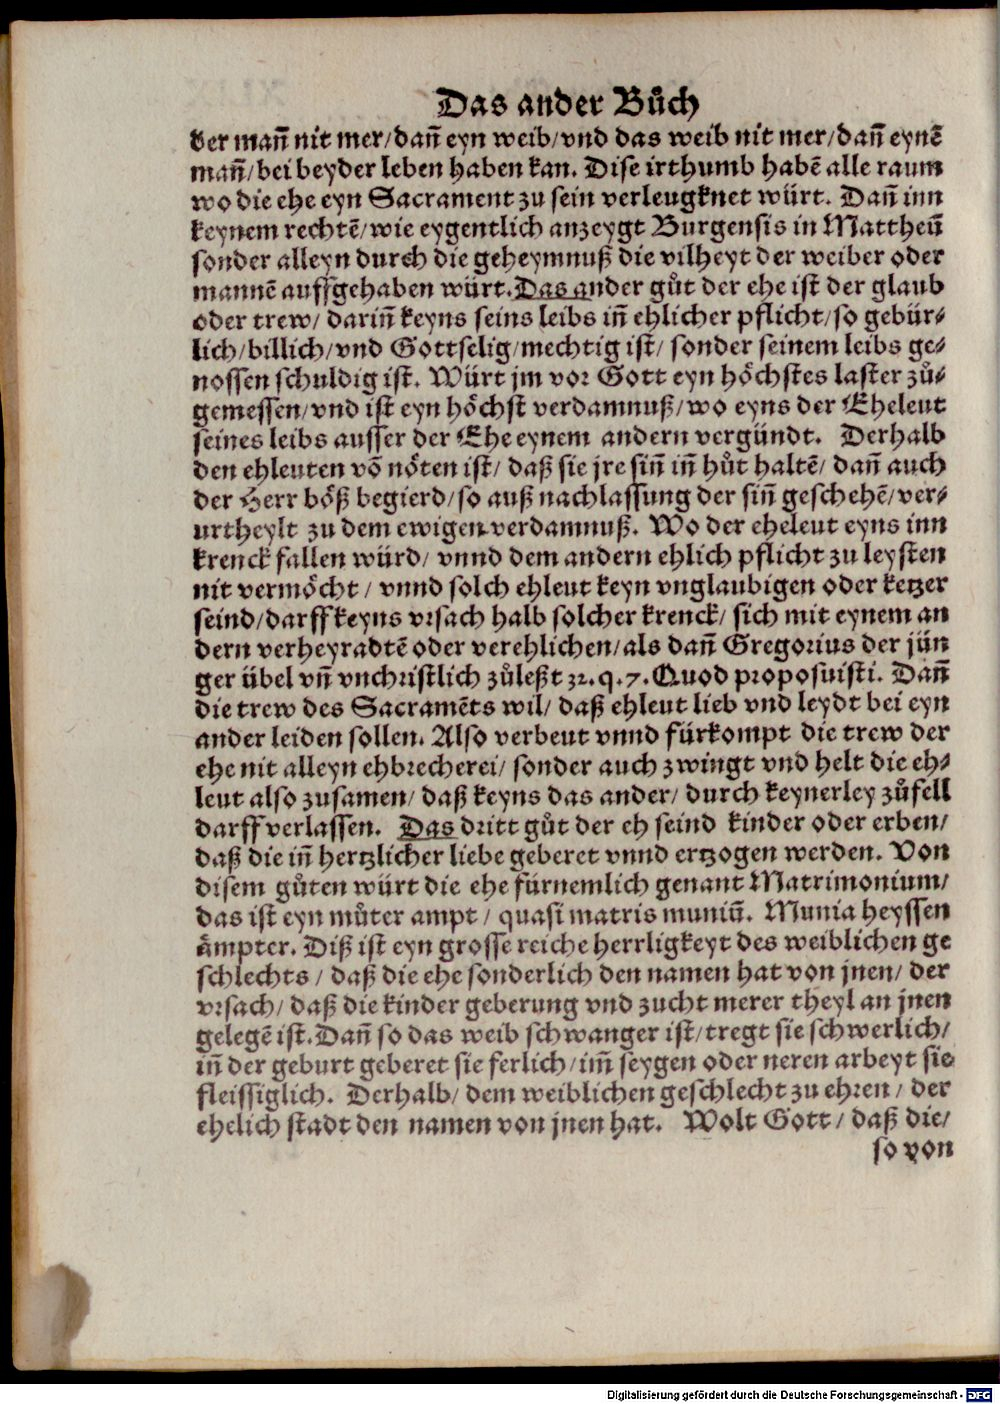 Das ander Bůch
der mañ nit mer/dañ eyn weib/vnd das weib nit mer/dañ eynẽ
mañ/bei beyder leben haben kan. Dise irthumb habẽ alle raum
wo die ehe eyn Sacrament zu sein verleugknet würt. Dañ inn
keynem rechtẽ/wie eygentlich anzeygt Burgensis in Mattheũ
sonder alleyn durch die geheymnuß die vilheyt der weiber oder
mannẽ auffgehaben würt. Das ander gůt der ehe ist der glaub
oder trew/ dariñ keyns seins leibs iñ ehlicher pflicht/so gebür⸗
lich/billich/vnd Gottselig/mechtig ist/ sonder seinem leibs ge⸗
nossen schuldig ist. Würt jm vor Gott eyn hoͤchstes laster zů⸗
gemessen/vnd ist eyn hoͤchst verdamnuß/wo eyns der Eheleut
seines leibs ausser der Ehe eynem andern vergündt. Derhalb
den ehleuten võ noͤten ist/ daß sie jre siñ iñ hůt haltẽ/ dañ auch
der Herr boͤß begierd/so auß nachlassung der siñ geschehẽ/ver⸗
urtheylt zu dem ewigen verdamnuß. Wo der eheleut eyns inn
krenck fallen würd/ vnnd dem andern ehlich pflicht zu leysten
nit vermoͤcht / vnnd solch ehleut keyn vnglaubigen oder ketzer
seind/darff keyns vrsach halb solcher krenck/ sich mit eynem an
dern verheyradtẽ oder verehlichen/als dañ Gregorius der jün
ger übel vñ vnchristlich zůleßt 32. q. 7. Quod proposuisti. Dañ
die trew des Sacramẽts wil/ daß ehleut lieb vnd leydt bei eyn
ander leiden sollen. Also verbeut vnnd fürkompt die trew der
ehe nit alleyn ehbrecherei/ sonder auch zwingt vnd helt die eh⸗
leut also zusamen/ daß keyns das ander/ durch keynerley zůfell
darff verlassen. Das dritt gůt der eh seind kinder oder erben/
daß die iñ hertzlicher liebe geberet vnnd ertzogen werden. Von
disem gůten würt die ehe fürnemlich genant Matrimonium/
das ist eyn můter ampt / quasi matris muniũ. Munia heyssen
aͤmpter. Diß ist eyn grosse reiche herrligkeyt des weiblichen ge
schlechts / daß die ehe sonderlich den namen hat von jnen/ der
vrsach/ daß die kinder geberung vnd zucht merer theyl an jnen
gelegẽ ist. Dañ so das weib schwanger ist/tregt sie schwerlich/
iñ der geburt geberet sie ferlich/im̃ seygen oder neren arbeyt sie
fleissiglich. Derhalb/ dem weiblichen geschlecht zu ehren / der
ehelich stadt den namen von jnen hat. Wolt Gott / daß die/
so von
Digitalisierung gefördert durch die Deutsche Forschungsgemeinschaft - DFG